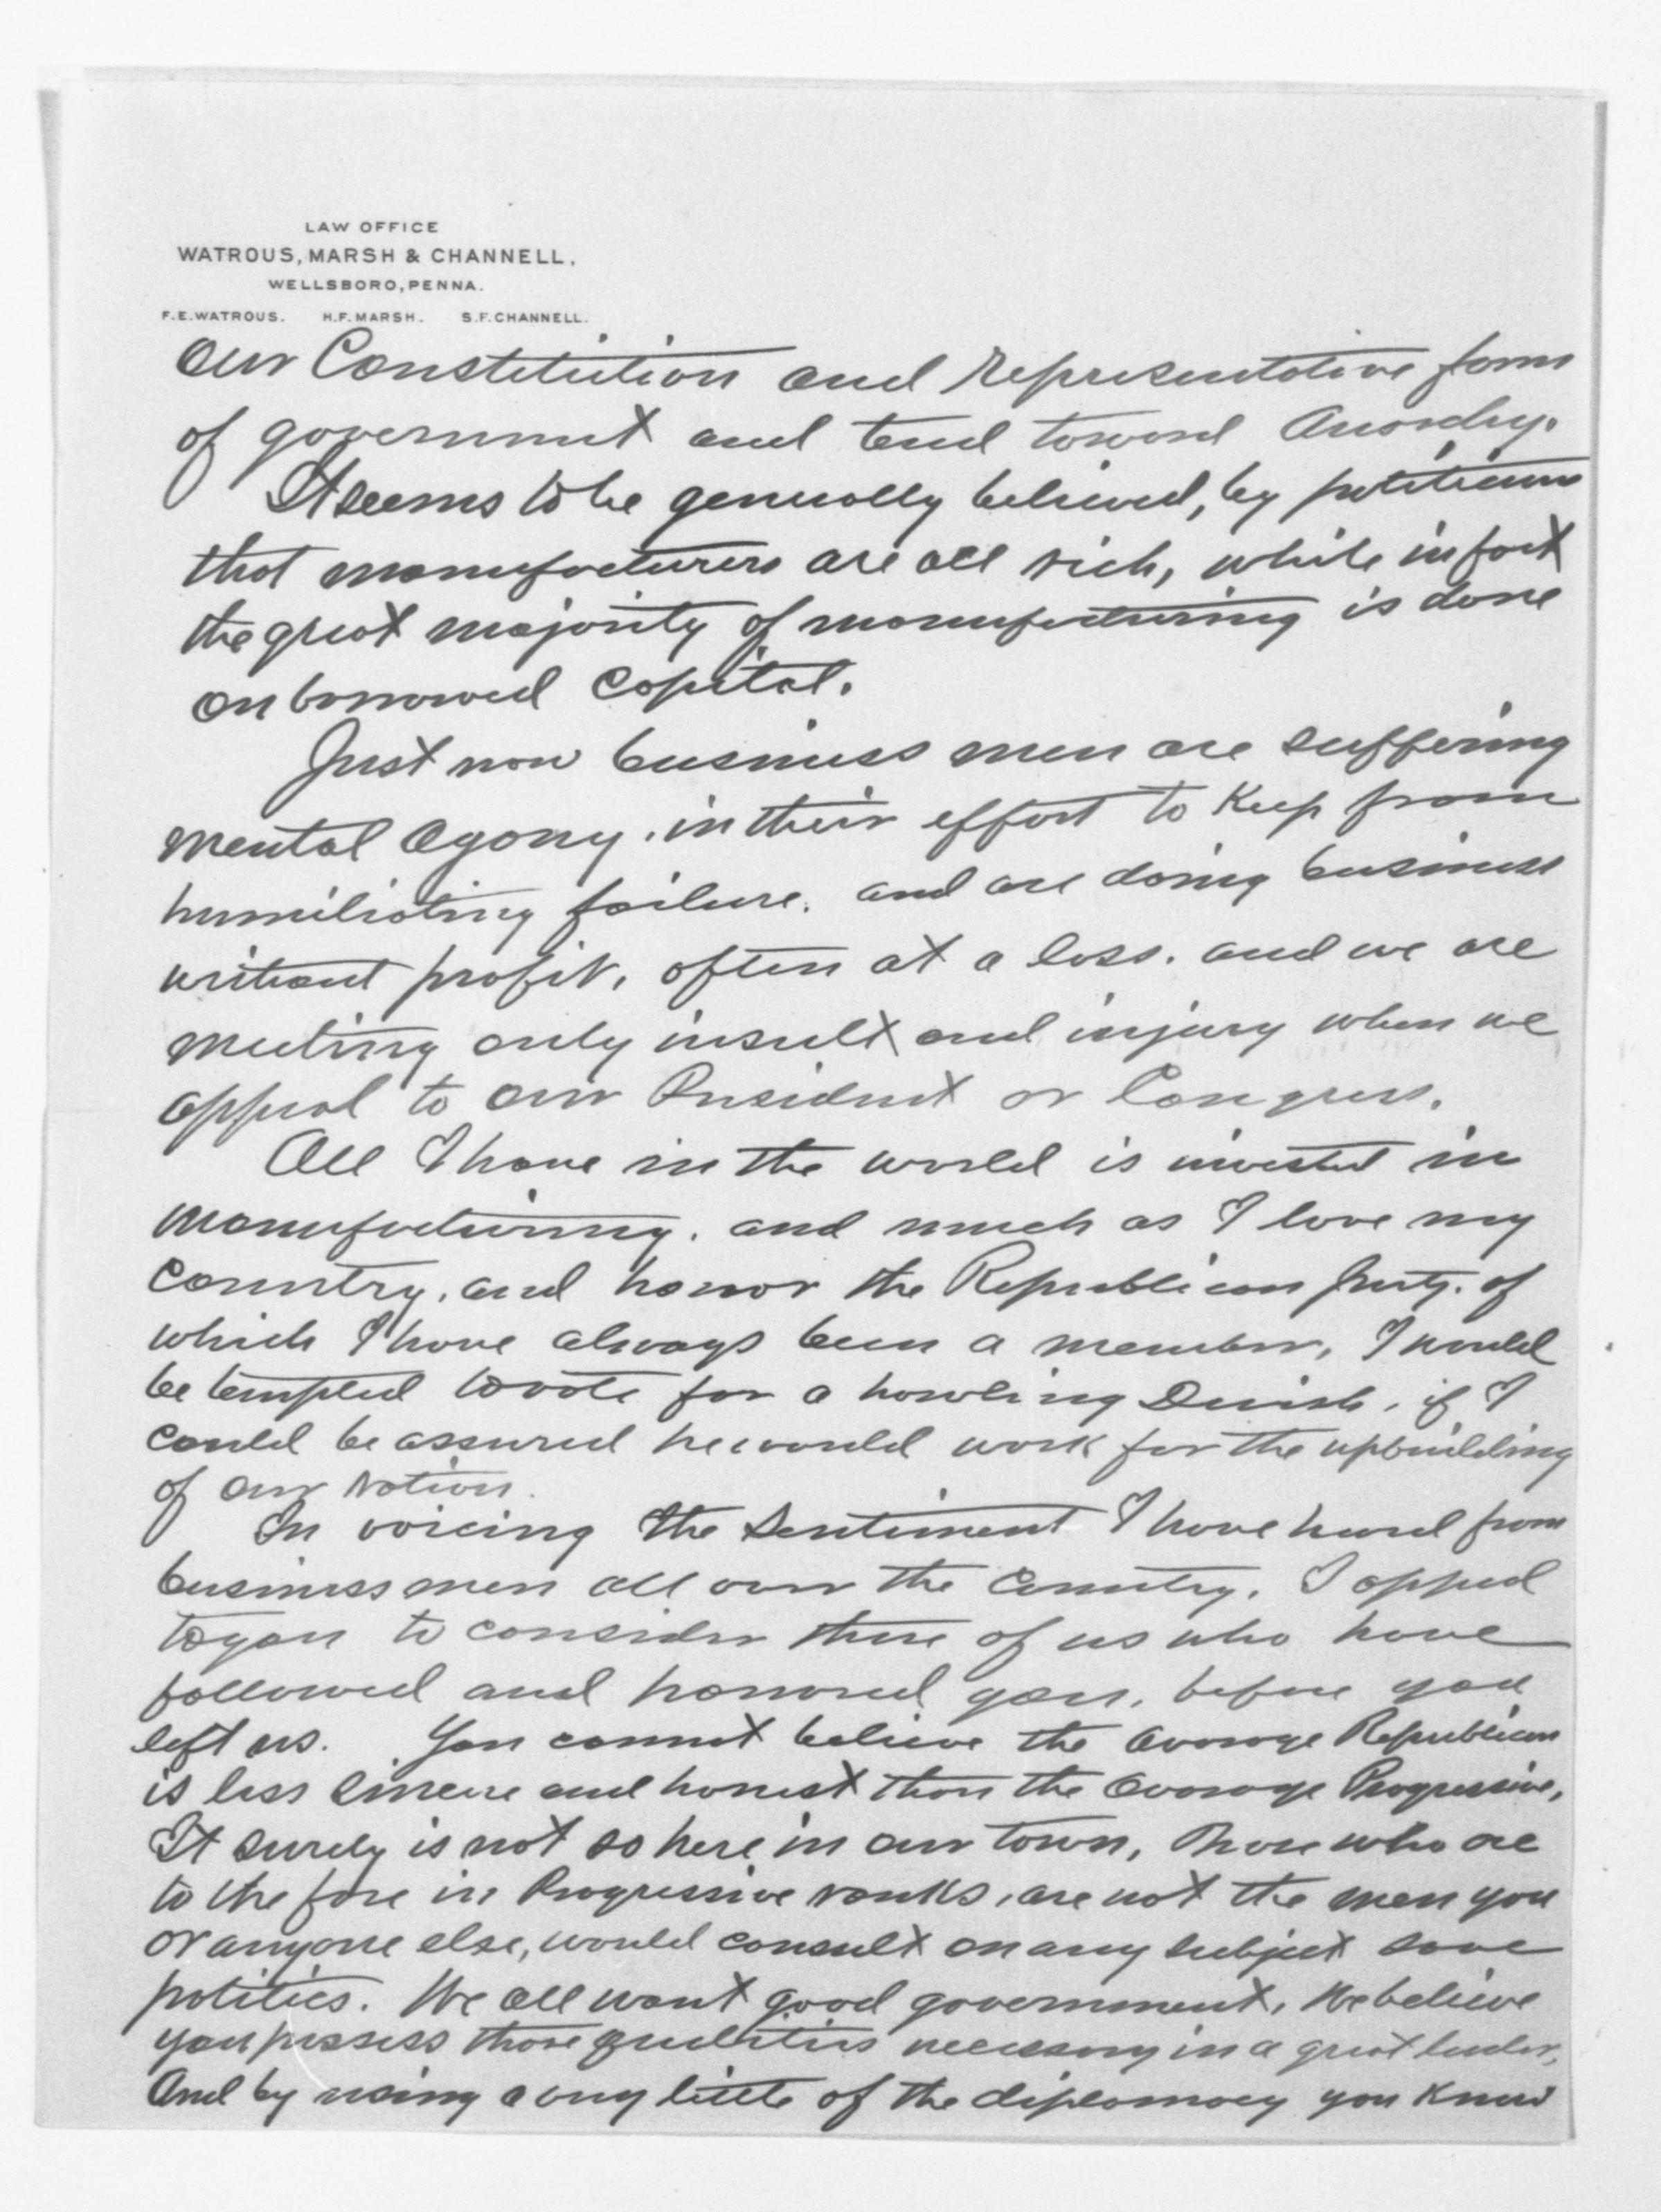 LAW OFFICE
WATROUS, MARSH & CHANNELL,
WELLSBORO, PENNA.
F.E. WATROUS. H.F. MARSH. S.F. CHANNELL.
Our Constitution and representative form
of government and tend toward Anarchy.
It seems to be generally believed, by politicians
that manufacturers are all rich, while in fact
the great majority of manufacturing is done
on borrowed capital.
Just now business men are suffering
mental agony, in their effort to keep from
humiliating failure, and are doing business
without profit, often at a loss, and we are
meeting only insult and injury when we
appeal to our President or Congress.
All I have in the world is invested in
manufacturing, and much as I love my
country, and honor the Republican party, of
which I have always been a member, I would
be tempted to vote for a howling Dervish, if I
could be assured he would work for the upbuilding
of our Nation.
In voicing the sentiment I have heard from
business men all over the country, I appeal
to you to consider those of us who have
followed and honored you, before you
left us. You cannot believe the average Republican
is less sincere and honest than the average Progressive,
It surely is not so here in our town, Those who are
to the fore in Progressive ranks, are not the men you
or anyone else, would consult on any subject save
politics. We all want good government, We believe
you possess those qualities necessary in a great leader,
And by using a very little of the diplomacy you know